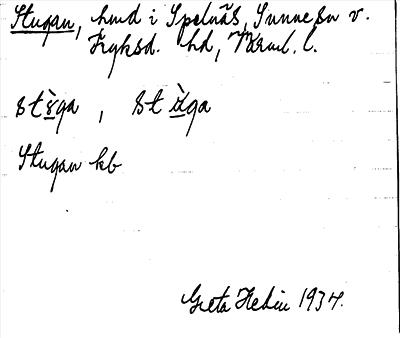 Stugan, hmd i Spelnäs, Sunne sn v.
Fryksd. hd, Värml. l.
stga, stga
Stugan kb
Greta Hedin 1934.